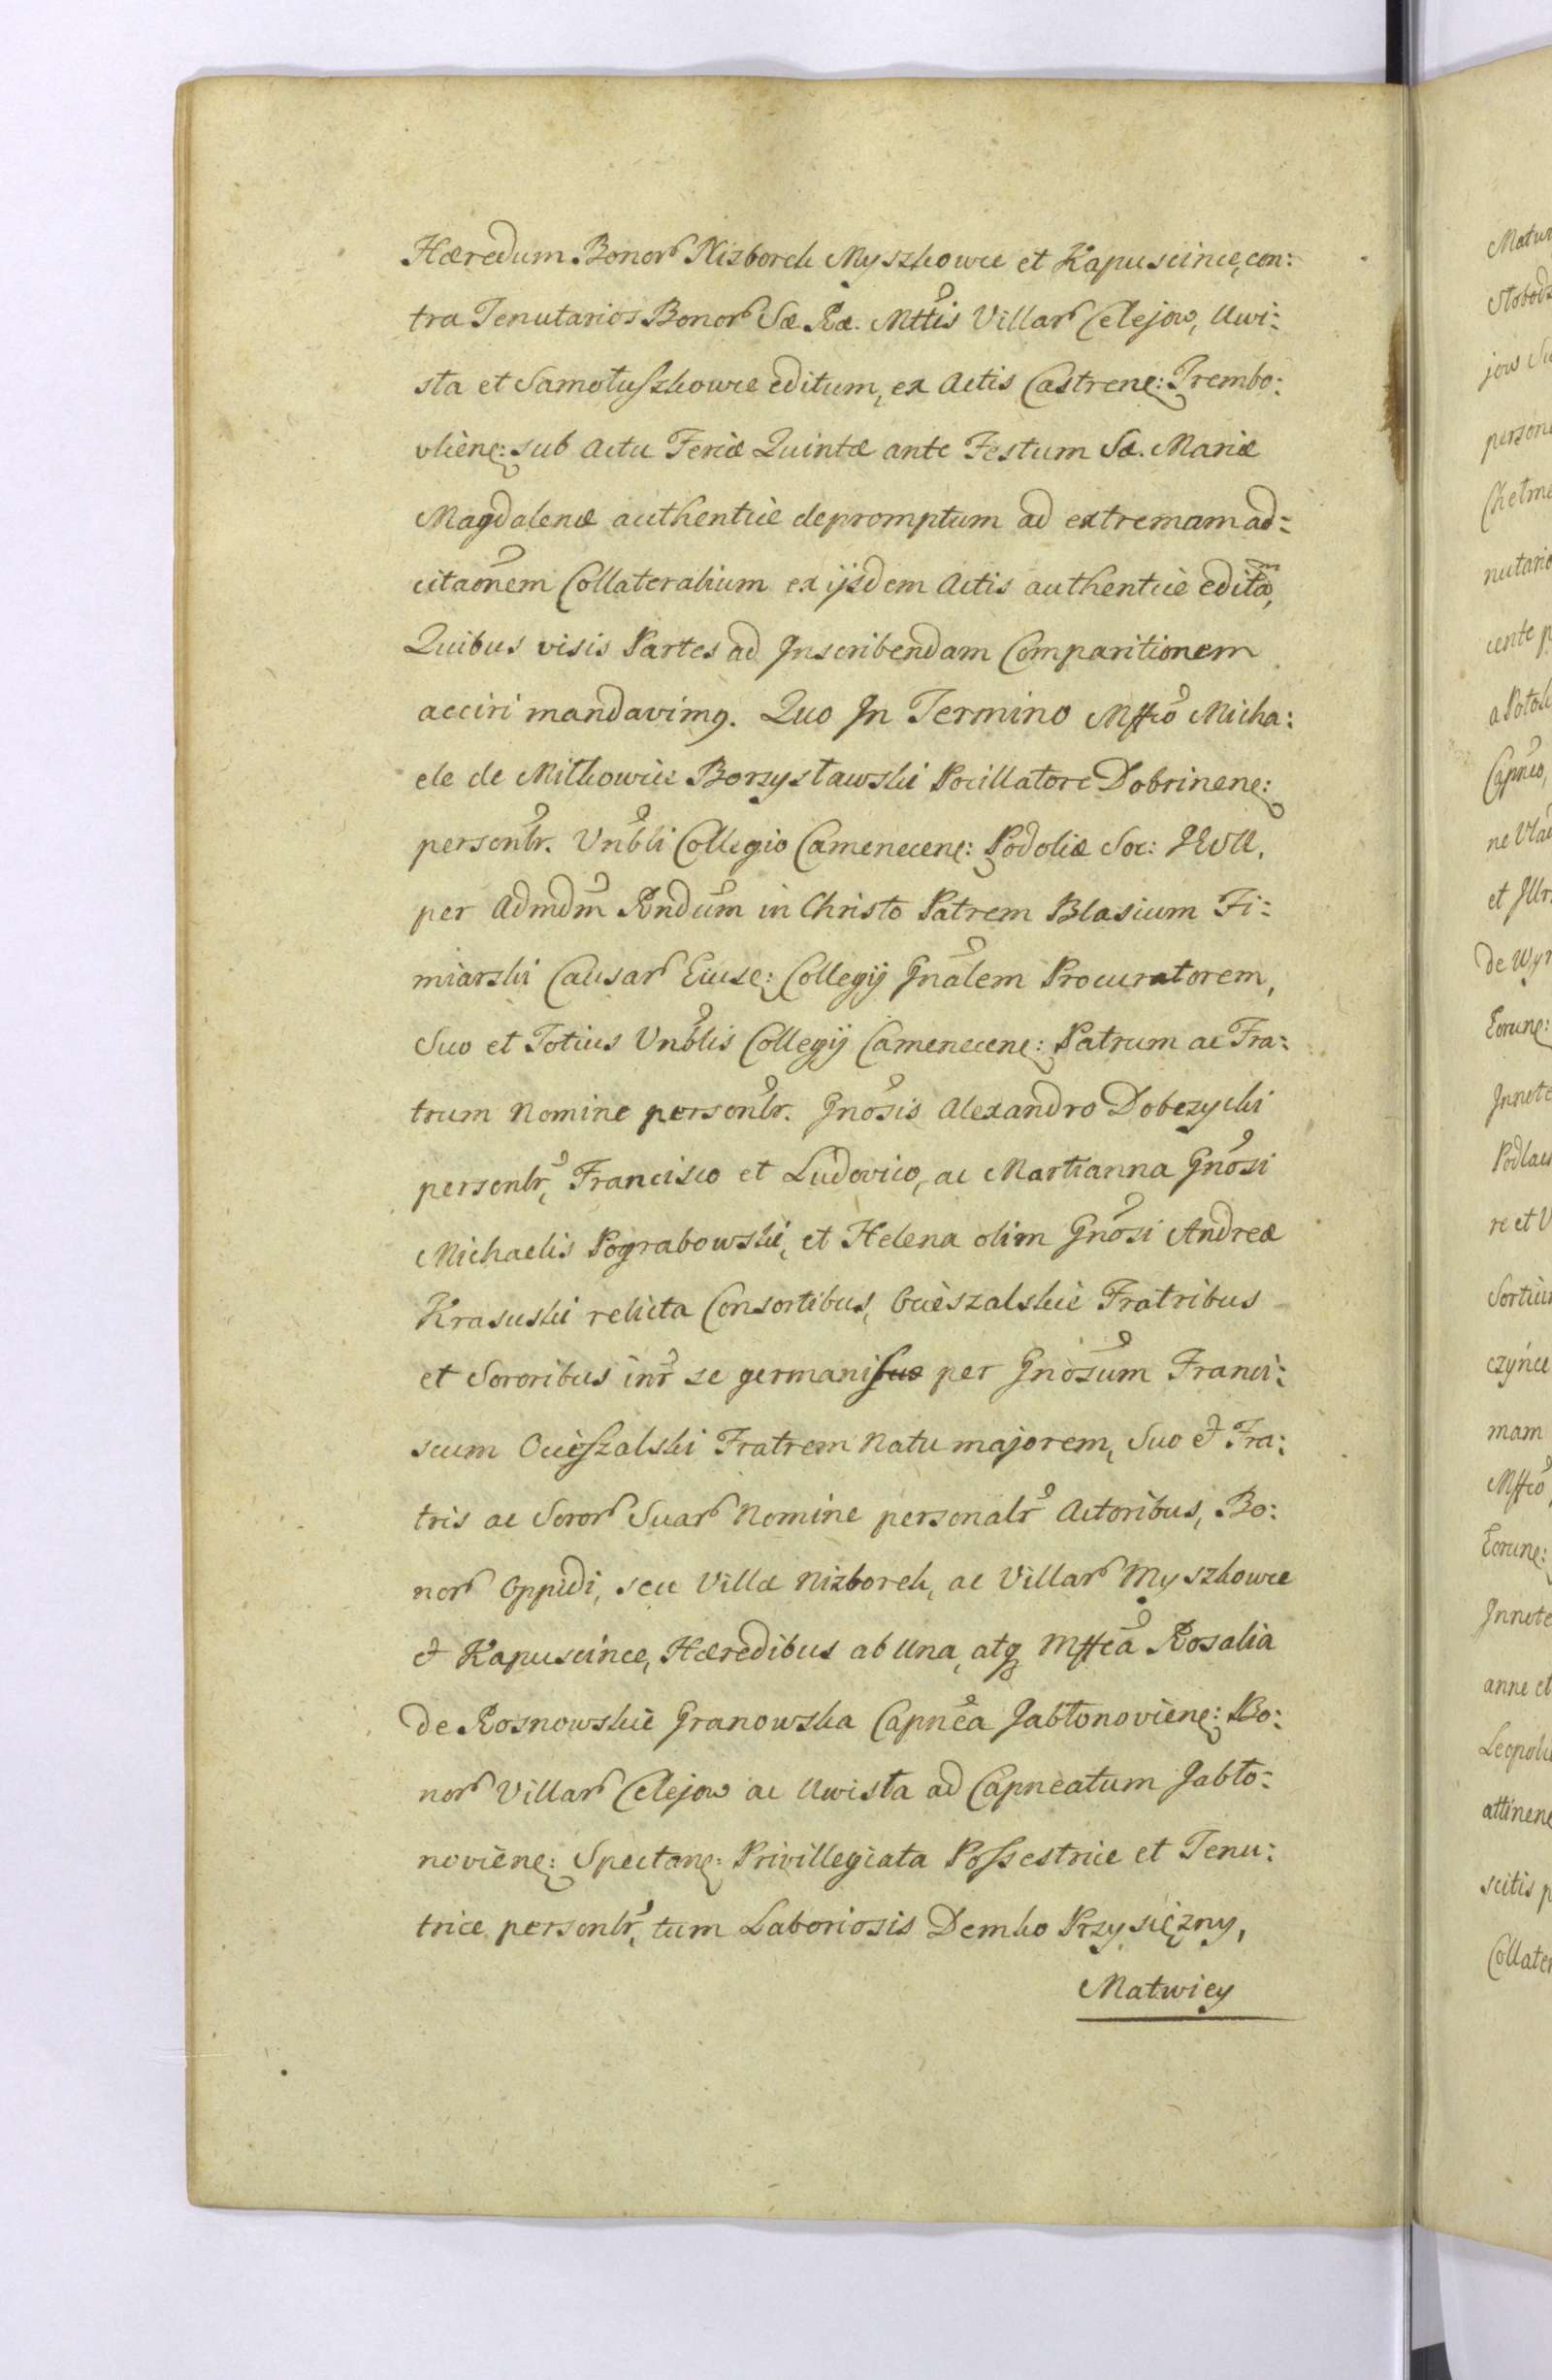 Hæredum Bonor Nizborek Myszkowce et Kapuscince, con:
tra Tenutarios Bonor Sæ Ræ. Mttis Villar Celejow, Uwi:
sta et Samotuszkowce editum, ex Actis Castren: Trembo:
vlien: sub Actu Feriæ Quintæ ante Festum Sæ. Mariæ
Magdalenæ authentice depromptum ad extremam ad:
citaonem Collateralium ex ijsdem Actis authentice editam,
Quibus visis Partes ad Inscribendam Comparitionem
acciri mandavimq. Quo In Termino Mffco Micha:
ele de Mitkowice Borzysławski Pocillatore Dobrinen:
personlr. Vnbli Collegio Camenecen: Podoliæ Soc: JESU.
per Admdm Rndum in Christo Patrem Blasium Fi:
miarski Causar Eiusd: Collegij Gnalem Procuratorem,
Suo et Totius Vnblis Collegij Camenecen: Patrum ac Fra:
trum Nomine personlr. Gnosis Alexandro Dobczycki
personlr, Francisco et Ludovico, ac Martianna Gnosi
Michaelis Pograbowski, et Helena olim Gnosi Andreæ
Krasuski relicta Consortibus, Ocieszalskie Fratribus
et Sororibus intr se germanis per Gnosum Franci:
scum Ocieszalski Fratrem Natu majorem, Suo & Fra:
tris ac Soror Suar Nomine personalr Actoribus, Bo:
nor Oppidi, seu Villæ Nizborek, ac Villar Myszkowce
& Kapuscince, Hæredibus ab Una, atq Mffca Rosalia
de Rosnowskie Granowska Capnea Jabłonovien: Bo:
nor Villar Celejow ac Uwista ad Capneatum Jabło:
novien: Spectan: Privillegiata Possestrice et Tenu:
trice personlr, tum Laboriosis Demko Przysięzny,
Matwiey
Matwi
Słobod
jow Su
person
Chełm
nutario
cente p
a Potok
Capneo,
ne Vla
et Jllr
de Wy
Eorund:
Innote
Podlac
re et V
Sortiu
czynce
mam
Mffco
Eorund:
Innote
anne et
Leopoli
attinen
scitis p
Collater